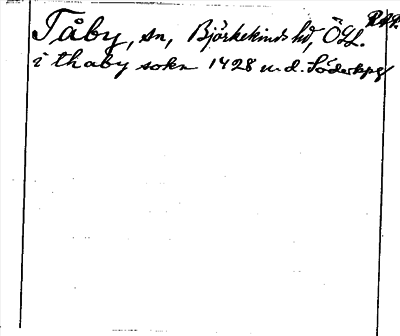 Täby, sn, Björkekinds hd, ÖGL.
i thaby sokn 1428 u.d. Söderkpg